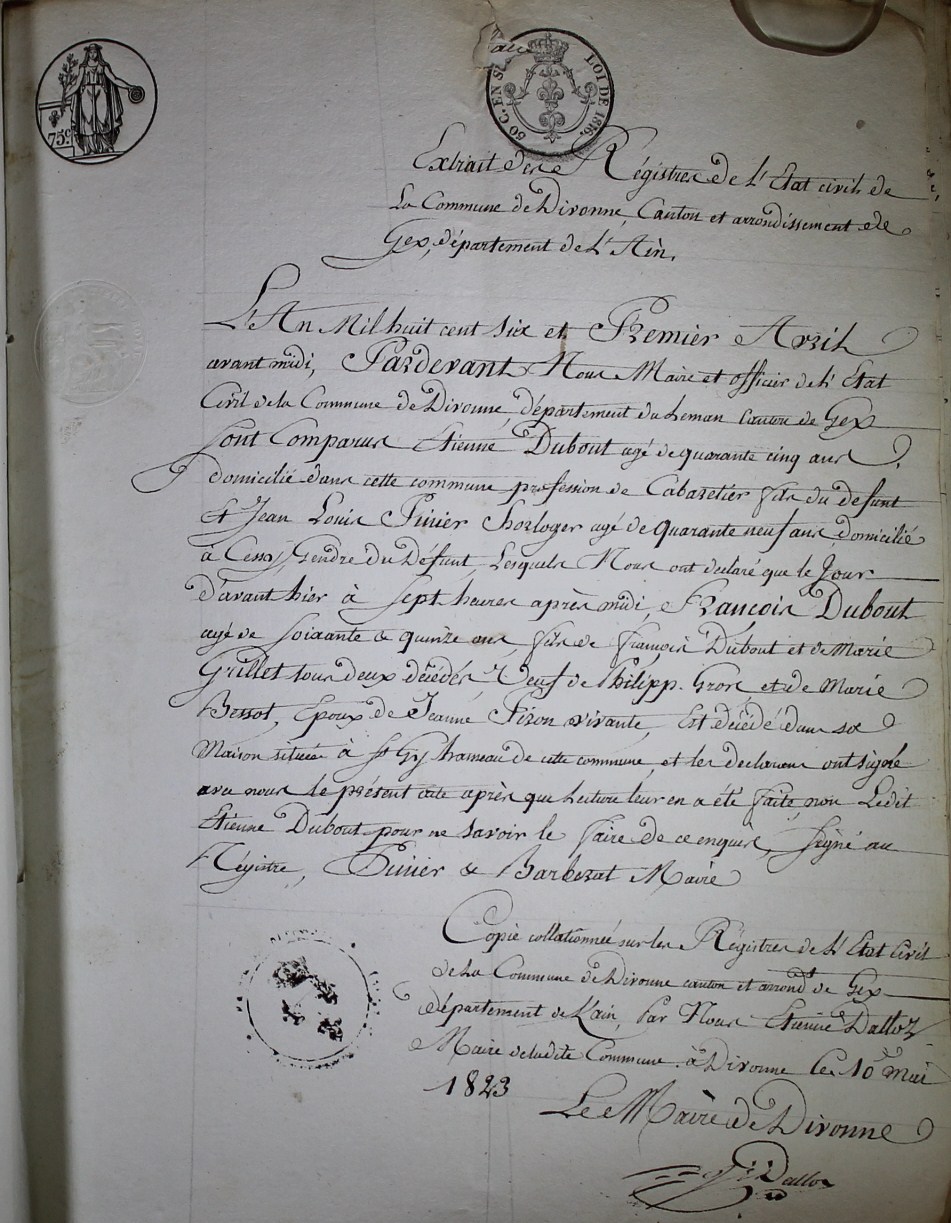 75c
50 C. EN S
LOI DE 1816.
Extrait des Régistres de L'Etat civil de
La Commune de Divonne, Canton et arrondissement de
Gex, département de L'Ain.
L'An Mil huit cent six et Premier Avril
avant midi, Pardevant Nous Maire et officier de L'Etat
Civil de la Commune de Divonne, département du Leman Canton de Gex
sont Comparus Etienne Dubout agé de quarante cinq ans
domicilié dans cette commune profession de Cabaretier fils du défunt
et Jean Louis horloger agé de quarante neuf ans domicilié
à Cessy, Gendre du Défunt, Lesquels Nous ont declaré que le Jour
d'avant hier à sept heures après midi, François Dubout
agé de soixante & quinze ans, fils de françois Dubout et de Marie
Grillet tous deux décédés Veuf de Philipp. Gros et de Marie
Bessot, Epoux de Jeanne vivante, Est décédé dans sa
Maison située à St Gy hameau de cette commune, et les declarans ont signé
avec nous le présent acte après que Lecture leur en a été faite, non Ledit
Etienne Dubout pour ne savoir le faire de ce enquis, signé au
Régistre, & Barberat Maire
Copie collationnée sur les Régistres de L'Etat Civil
de La Commune de Divonne canton et arrondt de Gex
département de L'ain, par Nous Etienne Dalloz
Maire de ladite Commune à Divonne le 10 Mai
1823
Le Maire de Divonne
Dalloz